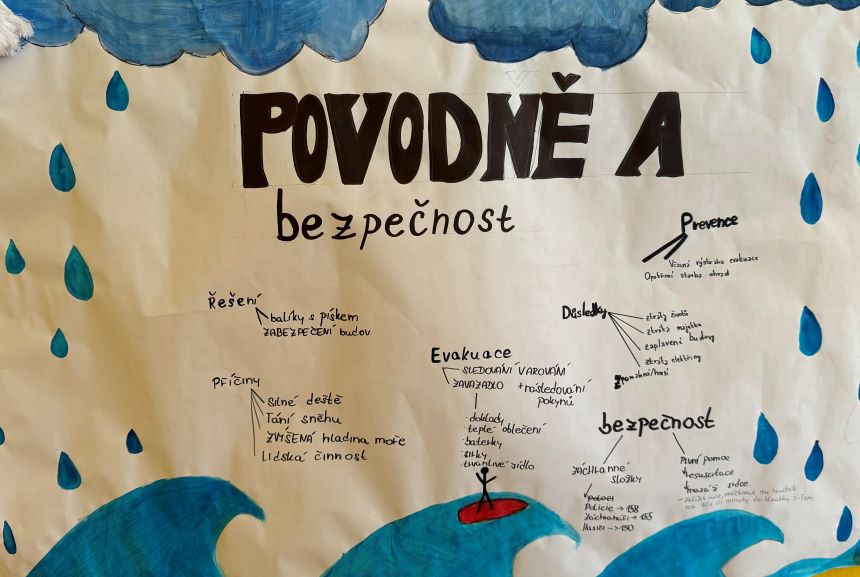 POVODNĚ A
bezpečnost
Prevence
Včasná výstraha evakuace
Opatření stavba ohrad
Řešení
balíky s pískem
ZABEZPEČENÍ budov
Důsledky
ztráty životů
ztráta majetku
zaplavené budovy
ztráty elektřiny
Evakuace
SLEDOVÁNÍ VAROVÁNÍ
ZAVAZADLO + následování
pokynů
· doklady
· teplé oblečení
· baterky
· sirky
· trvanlivé jídlo
Příčiny
Silné deště
Tání sněhu
ZVÝŠENÁ hladina moře
Lidská činnost
bezpečnost
ZÁCHRANNÉ
SLOŽKY
Policie → 158
Záchranáři → 155
Hasiči → 150
První pomoc
resuscitace
masáž srdce